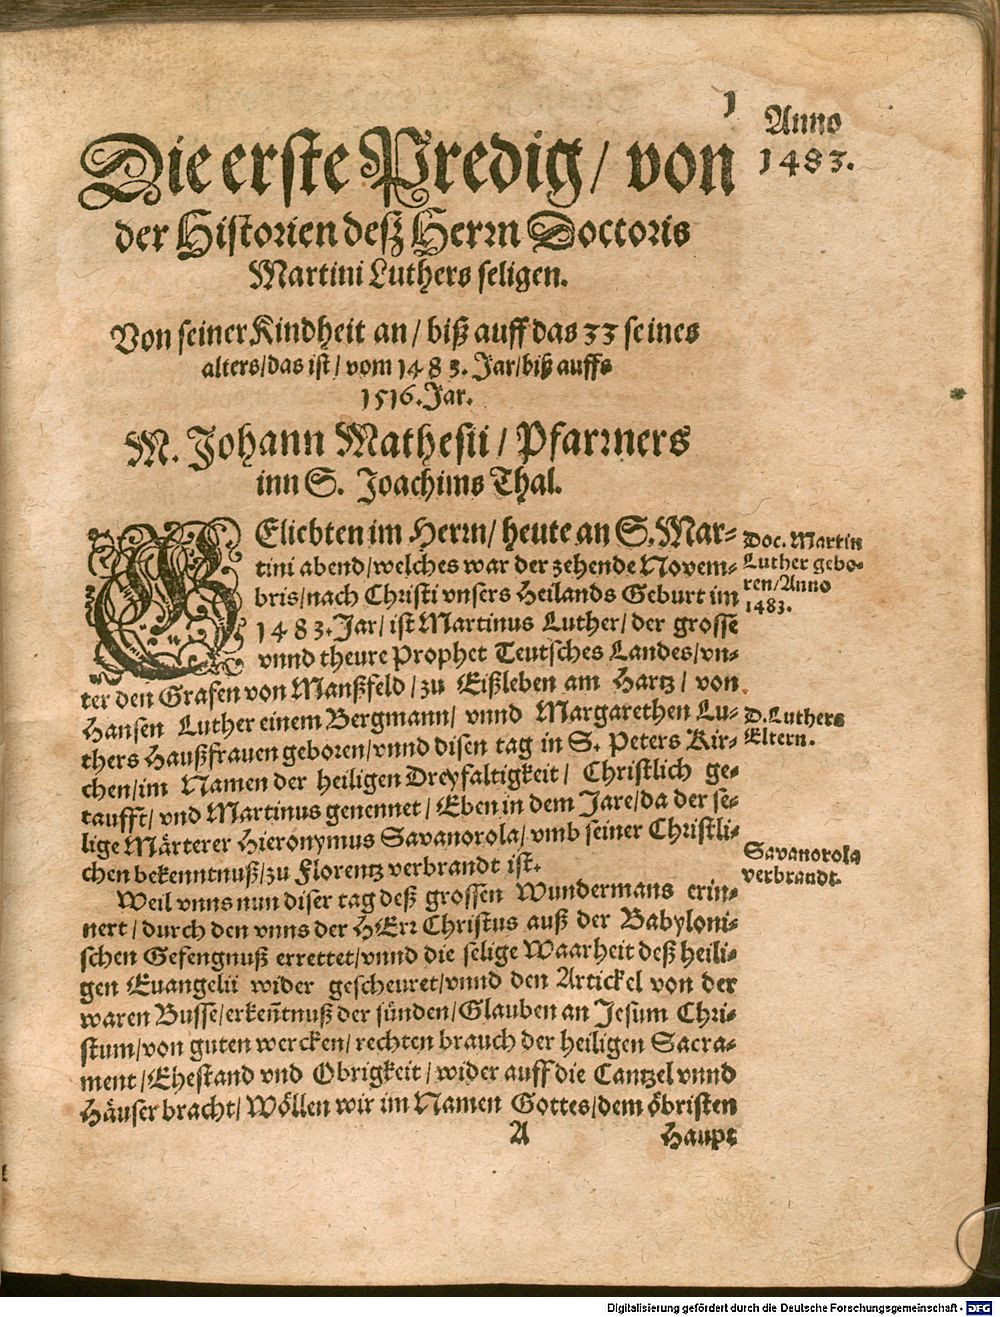 1
Anno
1483.
Die erste Predig/ von
der Historien deß Herrn Doctoris
Martini Luthers seligen.
Von seiner Kindheit an/ biß auff das 33 seines
alters/das ist/ vom 1483. Jar/biß auffs
1516. Jar.
M. Johann Mathesii/ Pfarrners
inn S. Joachims Thal.
GEliebten im Herrn/ heute an S. Mar-
tini abend/welches war der zehende Novem-
bris/nach Christi vnsers Heilands Geburt im
1483. Jar/ ist Martinus Luther/ der grosse
vnnd theure Prophet Teutsches Landes/vn-
ter den Grafen von Manßfeld/zu Eißleben am Hartz/ von
Hansen Luther einem Bergmann/ vnnd Margarethen Lu-
thers Haußfrauen geboren/vnnd disen tag in S. Peters Kir-
chen/im Namen der heiligen Dreyfaltigkeit/ Christlich ge-
taufft/ vnd Martinus genennet/ Eben in dem Jare/da der se-
lige Märterer Hieronymus Savanorola/ vmb seiner Christli-
chen bekenntnuß/zu Florentz verbrandt ist.
Weil vnns nun diser tag deß grossen Wundermans erin-
nert/durch den vnns der HErr Christus auß der Babyloni-
schen Gefengnuß errettet/vnnd die selige Waarheit deß heili-
gen Euangelii wider gescheuret/vnnd den Artickel von der
waren Busse/erkeñtnuß der sünden/Glauben an Jesum Chri-
stum/von guten wercken/ rechten brauch der heiligen Sacra-
ment/Ehestand vnd Obrigkeit/wider auff die Cantzel vnnd
Häuser bracht/ Wöllen wir im Namen Gottes/dem öbristen
A
Haupt
Doc. Martin
Luther gebo-
ren/Anno
1483.
D. Luthers
Eltern.
Savanorola
verbrandt.
Digitalisierung gefördert durch die Deutsche Forschungsgemeinschaft - DFG